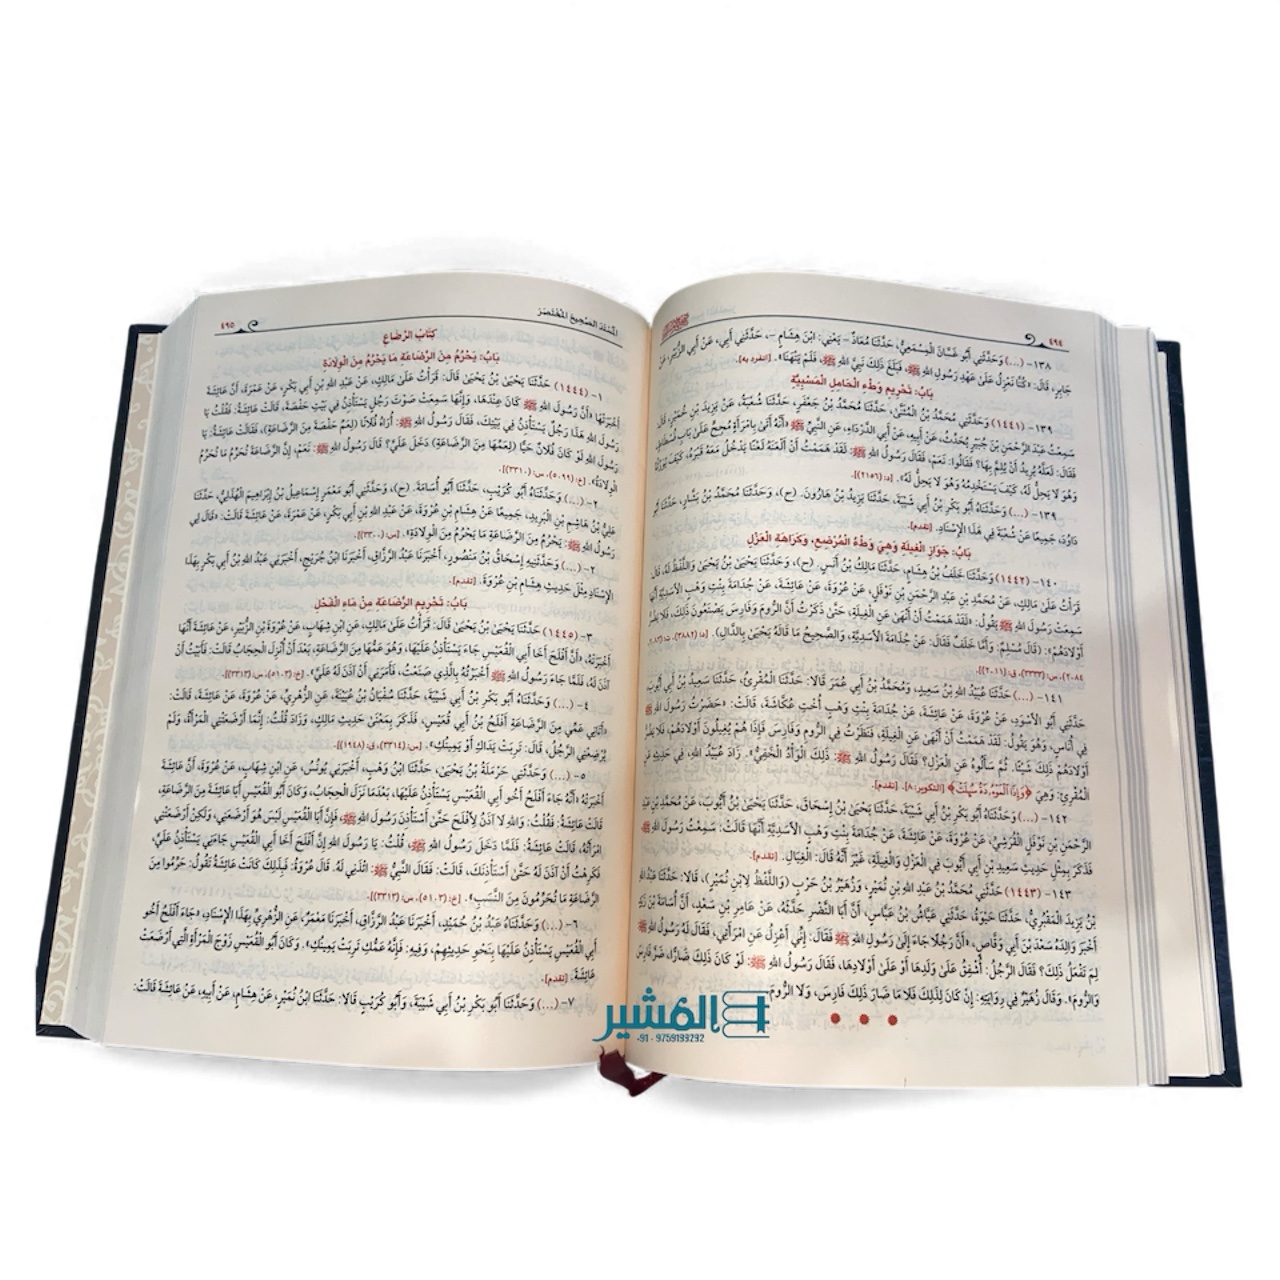 ٤٩٤
١٣٨- (...) وَحَدَّثَنِي أَبُو غَسَّانَ الْمِسْمَعِيُّ، حَدَّثَنَا مُعَاذٌ – يَعْنِي: ابْنَ هِشَامٍ –، حَدَّثَنِي أَبِي، عَنْ أَبِي الزُّبَيْرِ، عَنْ
جَابِرٍ، قَالَ: «كُنَّا نَعْزِلُ عَلَىٰ عَهْدِ رَسُولِ اللهِ ﷺ، فَبَلَغَ ذَلِكَ نَبِيَّ اللهِ ﷺ، فَلَمْ يَنْهَنَا». [انفرد به].
بَابُ: تَحْرِيمِ وَطْءِ الْحَامِلِ الْمَسْبِيَّةِ
١٣٩- (١٤٤١) وَحَدَّثَنِي مُحَمَّدُ بْنُ الْمُثَنَّى، حَدَّثَنَا مُحَمَّدُ بْنُ جَعْفَرٍ، حَدَّثَنَا شُعْبَةُ، عَنْ يَزِيدَ بْنِ خُمَيْرٍ، قَالَ
سَمِعْتُ عَبْدَ الرَّحْمَنِ بْنَ جُبَيْرٍ يُحَدِّثُ، عَنْ أَبِيهِ، عَنْ أَبِي الدَّرْدَاءِ، عَنِ النَّبِيِّ ﷺ «أَنَّهُ أَتَىٰ بِامْرَأَةٍ مُجِحٍّ عَلَىٰ بَابِ فُسْطَاطٍ
فَقَالَ: لَعَلَّهُ يُرِيدُ أَنْ يُلِمَّ بِهَا؟ فَقَالُوا: نَعَمْ، فَقَالَ رَسُولُ اللهِ ﷺ: لَقَدْ هَمَمْتُ أَنْ أَلْعَنَهُ لَعْنًا يَدْخُلُ مَعَهُ قَبْرَهُ، كَيْفَ يُوَرِّثُهُ
وَهُوَ لَا يَحِلُّ لَهُ، كَيْفَ يَسْتَخْدِمُهُ وَهُوَ لَا يَحِلُّ لَهُ». [د: (٢١٥٦)].
١٣٩- (...) وَحَدَّثَنَاهُ أَبُو بَكْرِ بْنُ أَبِي شَيْبَةَ، حَدَّثَنَا يَزِيدُ بْنُ هَارُونَ. (ح)، وَحَدَّثَنَا مُحَمَّدُ بْنُ بَشَّارٍ، حَدَّثَنَا أَبُو
دَاوُدَ، جَمِيعًا عَنْ شُعْبَةَ فِي هَذَا الْإِسْنَادِ. [تقدم].
بَابُ: جَوَازِ الْغِيلَةِ وَهِيَ وَطْءُ الْمُرْضِعِ، وَكَرَاهَةِ الْعَزْلِ
١٤٠- (١٤٤٢) وَحَدَّثَنَا خَلَفُ بْنُ هِشَامٍ، حَدَّثَنَا مَالِكُ بْنُ أَنَسٍ. (ح)، وَحَدَّثَنَا يَحْيَىٰ بْنُ يَحْيَىٰ وَاللَّفْظُ لَهُ، قَالَ
قَرَأْتُ عَلَىٰ مَالِكٍ، عَنْ مُحَمَّدِ بْنِ عَبْدِ الرَّحْمَنِ بْنِ نَوْفَلٍ، عَنْ عُرْوَةَ، عَنْ عَائِشَةَ، عَنْ جُدَامَةَ بِنْتِ وَهْبٍ الْأَسَدِيَّةِ أَنَّهَا
سَمِعَتْ رَسُولَ اللهِ ﷺ يَقُولُ: «لَقَدْ هَمَمْتُ أَنْ أَنْهَىٰ عَنِ الْغِيلَةِ، حَتَّىٰ ذَكَرْتُ أَنَّ الرُّومَ وَفَارِسَ يَصْنَعُونَ ذَلِكَ، فَلَا يَضُرُّ
أَوْلَادَهُمْ». (قَالَ مُسْلِمٌ: وَأَمَّا خَلَفٌ فَقَالَ: عَنْ جُدَامَةَ الْأَسَدِيَّةِ، وَالصَّحِيحُ مَا قَالَهُ يَحْيَىٰ بِالدَّالِ). [د: (٣٨٨٢)،
٢٠٨٤، س: (٣٣٣٣)، ق: (٢٠١١)].
١٤١- (...) حَدَّثَنَا عُبَيْدُ اللهِ بْنُ سَعِيدٍ، وَمُحَمَّدُ بْنُ أَبِي عُمَرَ قَالَا: حَدَّثَنَا الْمُقْرِئُ، حَدَّثَنَا سَعِيدُ بْنُ أَبِي أَيُّوبَ
حَدَّثَنِي أَبُو الْأَسْوَدِ، عَنْ عُرْوَةَ، عَنْ عَائِشَةَ، عَنْ جُدَامَةَ بِنْتِ وَهْبٍ أُخْتِ عُكَّاشَةَ، قَالَتْ: «حَضَرْتُ رَسُولَ اللهِ ﷺ
فِي أُنَاسٍ، وَهُوَ يَقُولُ: لَقَدْ هَمَمْتُ أَنْ أَنْهَىٰ عَنِ الْغِيلَةِ، فَنَظَرْتُ فِي الرُّومِ وَفَارِسَ، فَإِذَا هُمْ يُغِيلُونَ أَوْلَادَهُمْ، فَلَا يَضُرُّ
أَوْلَادَهُمْ ذَلِكَ شَيْئًا. ثُمَّ سَأَلُوهُ عَنِ الْعَزْلِ؟ فَقَالَ رَسُولُ اللهِ ﷺ: ذَلِكَ الْوَأْدُ الْخَفِيُّ». زَادَ عُبَيْدُ اللهِ، فِي حَدِيثِهِ عَنِ
الْمُقْرِئِ: وَهِيَ ﴿وَإِذَا الْمَوْءُۥدَةُ سُئِلَتْ﴾ [التكوير: ٨]. [تقدم].
١٤٢- (...) وَحَدَّثَنَاهُ أَبُو بَكْرِ بْنُ أَبِي شَيْبَةَ، حَدَّثَنَا يَحْيَىٰ بْنُ إِسْحَاقَ، حَدَّثَنَا يَحْيَىٰ بْنُ أَيُّوبَ، عَنْ مُحَمَّدِ بْنِ عَبْدِ
الرَّحْمَنِ بْنِ نَوْفَلٍ الْقُرَشِيِّ، عَنْ عُرْوَةَ، عَنْ عَائِشَةَ، عَنْ جُدَامَةَ بِنْتِ وَهْبٍ الْأَسَدِيَّةِ أَنَّهَا قَالَتْ: سَمِعْتُ رَسُولَ اللهِ ﷺ
فَذَكَرَ بِمِثْلِ حَدِيثِ سَعِيدِ بْنِ أَبِي أَيُّوبَ فِي الْعَزْلِ وَالْغِيلَةِ، غَيْرَ أَنَّهُ قَالَ: الْغِيَالِ. [تقدم].
١٤٣- (١٤٤٣) حَدَّثَنِي مُحَمَّدُ بْنُ عَبْدِ اللهِ بْنِ نُمَيْرٍ، وَزُهَيْرُ بْنُ حَرْبٍ (وَاللَّفْظُ لِابْنِ نُمَيْرٍ)، قَالَا: حَدَّثَنَا عَبْدُ اللهِ
بْنُ يَزِيدَ الْمَقْبُرِيُّ، حَدَّثَنَا حَيْوَةُ، حَدَّثَنِي عَيَّاشُ بْنُ عَبَّاسٍ، أَنَّ أَبَا النَّضْرِ حَدَّثَهُ، عَنْ عَامِرِ بْنِ سَعْدٍ، أَنَّ أُسَامَةَ بْنَ زَيْدٍ
أَخْبَرَ وَالِدَهُ سَعْدَ بْنَ أَبِي وَقَّاصٍ، «أَنَّ رَجُلًا جَاءَ إِلَىٰ رَسُولِ اللهِ ﷺ فَقَالَ: إِنِّي أَعْزِلُ عَنِ امْرَأَتِي، فَقَالَ لَهُ رَسُولُ اللهِ ﷺ
لِمَ تَفْعَلُ ذَلِكَ؟ فَقَالَ الرَّجُلُ: أُشْفِقُ عَلَىٰ وَلَدِهَا أَوْ عَلَىٰ أَوْلَادِهَا، فَقَالَ رَسُولُ اللهِ ﷺ: لَوْ كَانَ ذَلِكَ ضَارًّا، ضَرَّ فَارِسَ
وَالرُّومَ». وَقَالَ زُهَيْرٌ فِي رِوَايَتِهِ: إِنْ كَانَ لِذَلِكَ فَلَا مَا ضَارَ ذَلِكَ فَارِسَ، وَلَا الرُّومَ.
٤٩٥
الْمُسْنَدُ الصَّحِيحُ الْمُخْتَصَرُ
كِتَابُ الرَّضَاعِ
بَابُ: يَحْرُمُ مِنَ الرَّضَاعَةِ مَا يَحْرُمُ مِنَ الْوِلَادَةِ
١- (١٤٤٤) حَدَّثَنَا يَحْيَىٰ بْنُ يَحْيَىٰ قَالَ: قَرَأْتُ عَلَىٰ مَالِكٍ، عَنْ عَبْدِ اللهِ بْنِ أَبِي بَكْرٍ، عَنْ عَمْرَةَ، أَنَّ عَائِشَةَ
أَخْبَرَتْهَا «أَنَّ رَسُولَ اللهِ ﷺ كَانَ عِنْدَهَا، وَإِنَّهَا سَمِعَتْ صَوْتَ رَجُلٍ يَسْتَأْذِنُ فِي بَيْتِ حَفْصَةَ، قَالَتْ عَائِشَةُ: فَقُلْتُ يَا
رَسُولَ اللهِ هَذَا رَجُلٌ يَسْتَأْذِنُ فِي بَيْتِكَ، فَقَالَ رَسُولُ اللهِ ﷺ: أُرَاهُ فُلَانًا (لِعَمِّ حَفْصَةَ مِنَ الرَّضَاعَةِ)، فَقَالَتْ عَائِشَةُ: يَا
رَسُولَ اللهِ لَوْ كَانَ فُلَانٌ حَيًّا (لِعَمِّهَا مِنَ الرَّضَاعَةِ) دَخَلَ عَلَيَّ؟ قَالَ رَسُولُ اللهِ ﷺ: نَعَمْ، إِنَّ الرَّضَاعَةَ تُحَرِّمُ مَا تُحَرِّمُ
الْوِلَادَةُ». [خ: (٥٠٩٩)، س: (٣٣١٠)].
٢- (...) وَحَدَّثَنَاهُ أَبُو كُرَيْبٍ، حَدَّثَنَا أَبُو أُسَامَةَ. (ح)، وَحَدَّثَنِي أَبُو مَعْمَرٍ إِسْمَاعِيلُ بْنُ إِبْرَاهِيمَ الْهُذَلِيُّ، حَدَّثَنَا
عَلِيُّ بْنُ هَاشِمِ بْنِ الْبَرِيدِ، جَمِيعًا عَنْ هِشَامِ بْنِ عُرْوَةَ، عَنْ عَبْدِ اللهِ بْنِ أَبِي بَكْرٍ، عَنْ عَمْرَةَ، عَنْ عَائِشَةَ قَالَتْ: «قَالَ لِي
رَسُولُ اللهِ ﷺ: يَحْرُمُ مِنَ الرَّضَاعَةِ مَا يَحْرُمُ مِنَ الْوِلَادَةِ». [س: (٣٣٠٠)].
٢- (...) وَحَدَّثَنِيهِ إِسْحَاقُ بْنُ مَنْصُورٍ، أَخْبَرَنَا عَبْدُ الرَّزَّاقِ، أَخْبَرَنَا ابْنُ جُرَيْجٍ، أَخْبَرَنِي عَبْدُ اللهِ بْنُ أَبِي بَكْرٍ بِهَذَا
الْإِسْنَادِ مِثْلَ حَدِيثِ هِشَامِ بْنِ عُرْوَةَ. [تقدم].
بَابُ: تَحْرِيمِ الرَّضَاعَةِ مِنْ مَاءِ الْفَحْلِ
٣- (١٤٤٥) حَدَّثَنَا يَحْيَىٰ بْنُ يَحْيَىٰ قَالَ: قَرَأْتُ عَلَىٰ مَالِكٍ، عَنِ ابْنِ شِهَابٍ، عَنْ عُرْوَةَ بْنِ الزُّبَيْرِ، عَنْ عَائِشَةَ أَنَّهَا
أَخْبَرَتْهُ، «أَنَّ أَفْلَحَ أَخَا أَبِي الْقُعَيْسِ جَاءَ يَسْتَأْذِنُ عَلَيْهَا، وَهُوَ عَمُّهَا مِنَ الرَّضَاعَةِ، بَعْدَ أَنْ أُنْزِلَ الْحِجَابُ قَالَتْ: فَأَبَيْتُ أَنْ
آذَنَ لَهُ، فَلَمَّا جَاءَ رَسُولُ اللهِ ﷺ أَخْبَرْتُهُ بِالَّذِي صَنَعْتُ، فَأَمَرَنِي أَنْ آذَنَ لَهُ عَلَيَّ». [خ: (٥١٠٣)، س: (٣٣١٣)].
٤- (...) وَحَدَّثَنَاهُ أَبُو بَكْرِ بْنُ أَبِي شَيْبَةَ، حَدَّثَنَا سُفْيَانُ بْنُ عُيَيْنَةَ، عَنِ الزُّهْرِيِّ، عَنْ عُرْوَةَ، عَنْ عَائِشَةَ، قَالَتْ:
«أَتَانِي عَمِّي مِنَ الرَّضَاعَةِ أَفْلَحُ بْنُ أَبِي قُعَيْسٍ، فَذَكَرَ بِمَعْنَىٰ حَدِيثِ مَالِكٍ، وَزَادَ قُلْتُ: إِنَّمَا أَرْضَعَتْنِي الْمَرْأَةُ، وَلَمْ
يُرْضِعْنِي الرَّجُلُ، قَالَ: تَرِبَتْ يَدَاكِ أَوْ يَمِينُكِ». [س: (٣٣١٤)، ق: (١٩٤٨)].
٥- (...) وَحَدَّثَنِي حَرْمَلَةُ بْنُ يَحْيَىٰ، حَدَّثَنَا ابْنُ وَهْبٍ، أَخْبَرَنِي يُونُسُ، عَنِ ابْنِ شِهَابٍ، عَنْ عُرْوَةَ، أَنَّ عَائِشَةَ
أَخْبَرَتْهُ «أَنَّهُ جَاءَ أَفْلَحُ أَخُو أَبِي الْقُعَيْسِ يَسْتَأْذِنُ عَلَيْهَا، بَعْدَمَا نَزَلَ الْحِجَابُ، وَكَانَ أَبُو الْقُعَيْسِ أَبَا عَائِشَةَ مِنَ الرَّضَاعَةِ،
قَالَتْ عَائِشَةُ: فَقُلْتُ: وَاللهِ لَا آذَنُ لِأَفْلَحَ حَتَّىٰ أَسْتَأْذِنَ رَسُولَ اللهِ ﷺ، فَإِنَّ أَبَا الْقُعَيْسِ لَيْسَ هُوَ أَرْضَعَنِي، وَلَكِنْ أَرْضَعَتْنِي
امْرَأَتُهُ، قَالَتْ عَائِشَةُ: فَلَمَّا دَخَلَ رَسُولُ اللهِ ﷺ، قُلْتُ: يَا رَسُولَ اللهِ إِنَّ أَفْلَحَ أَخَا أَبِي الْقُعَيْسِ جَاءَنِي يَسْتَأْذِنُ عَلَيَّ،
فَكَرِهْتُ أَنْ آذَنَ لَهُ حَتَّىٰ أَسْتَأْذِنَكَ، قَالَتْ: فَقَالَ النَّبِيُّ ﷺ: ائْذَنِي لَهُ. قَالَ عُرْوَةُ: فَبِذَلِكَ كَانَتْ عَائِشَةُ تَقُولُ: حَرِّمُوا مِنَ
الرَّضَاعَةِ مَا تُحَرِّمُونَ مِنَ النَّسَبِ». [خ: (٥١٠٣)، س: (٣٣١٣)].
٦- (...) وَحَدَّثَنَاهُ عَبْدُ بْنُ حُمَيْدٍ، أَخْبَرَنَا عَبْدُ الرَّزَّاقِ، أَخْبَرَنَا مَعْمَرٌ، عَنِ الزُّهْرِيِّ بِهَذَا الْإِسْنَادِ، «جَاءَ أَفْلَحُ أَخُو
أَبِي الْقُعَيْسِ يَسْتَأْذِنُ عَلَيْهَا بِنَحْوِ حَدِيثِهِمْ، وَفِيهِ: فَإِنَّهُ عَمُّكِ تَرِبَتْ يَمِينُكِ». وَكَانَ أَبُو الْقُعَيْسِ زَوْجَ الْمَرْأَةِ الَّتِي أَرْضَعَتْ
عَائِشَةَ. [تقدم].
٧- (...) وَحَدَّثَنَا أَبُو بَكْرِ بْنُ أَبِي شَيْبَةَ، وَأَبُو كُرَيْبٍ قَالَا: حَدَّثَنَا ابْنُ نُمَيْرٍ، عَنْ هِشَامٍ، عَنْ أَبِيهِ، عَنْ عَائِشَةَ قَالَتْ:
المشير
+91 - 9759199292